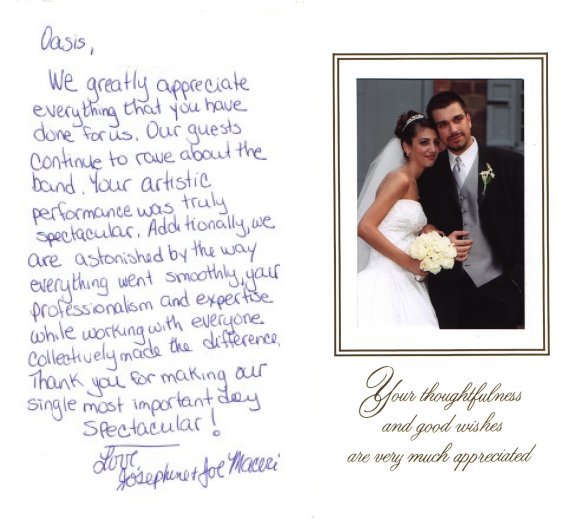 Oasis,
We greatly appreciate
everything that you have
done for us. Our guests
continue to rave about the
band. Your artistic
performance was truly
spectacular. Additionally, we
are astonished by the way
everything went smoothly, your
professionalism and expertise
while working with everyone
collectively made the difference.
Thank you for making our
single most important day
spectacular!
Love,
Josephine + Joe Maceri
Your thoughtfulness
and good wishes
are very much appreciated